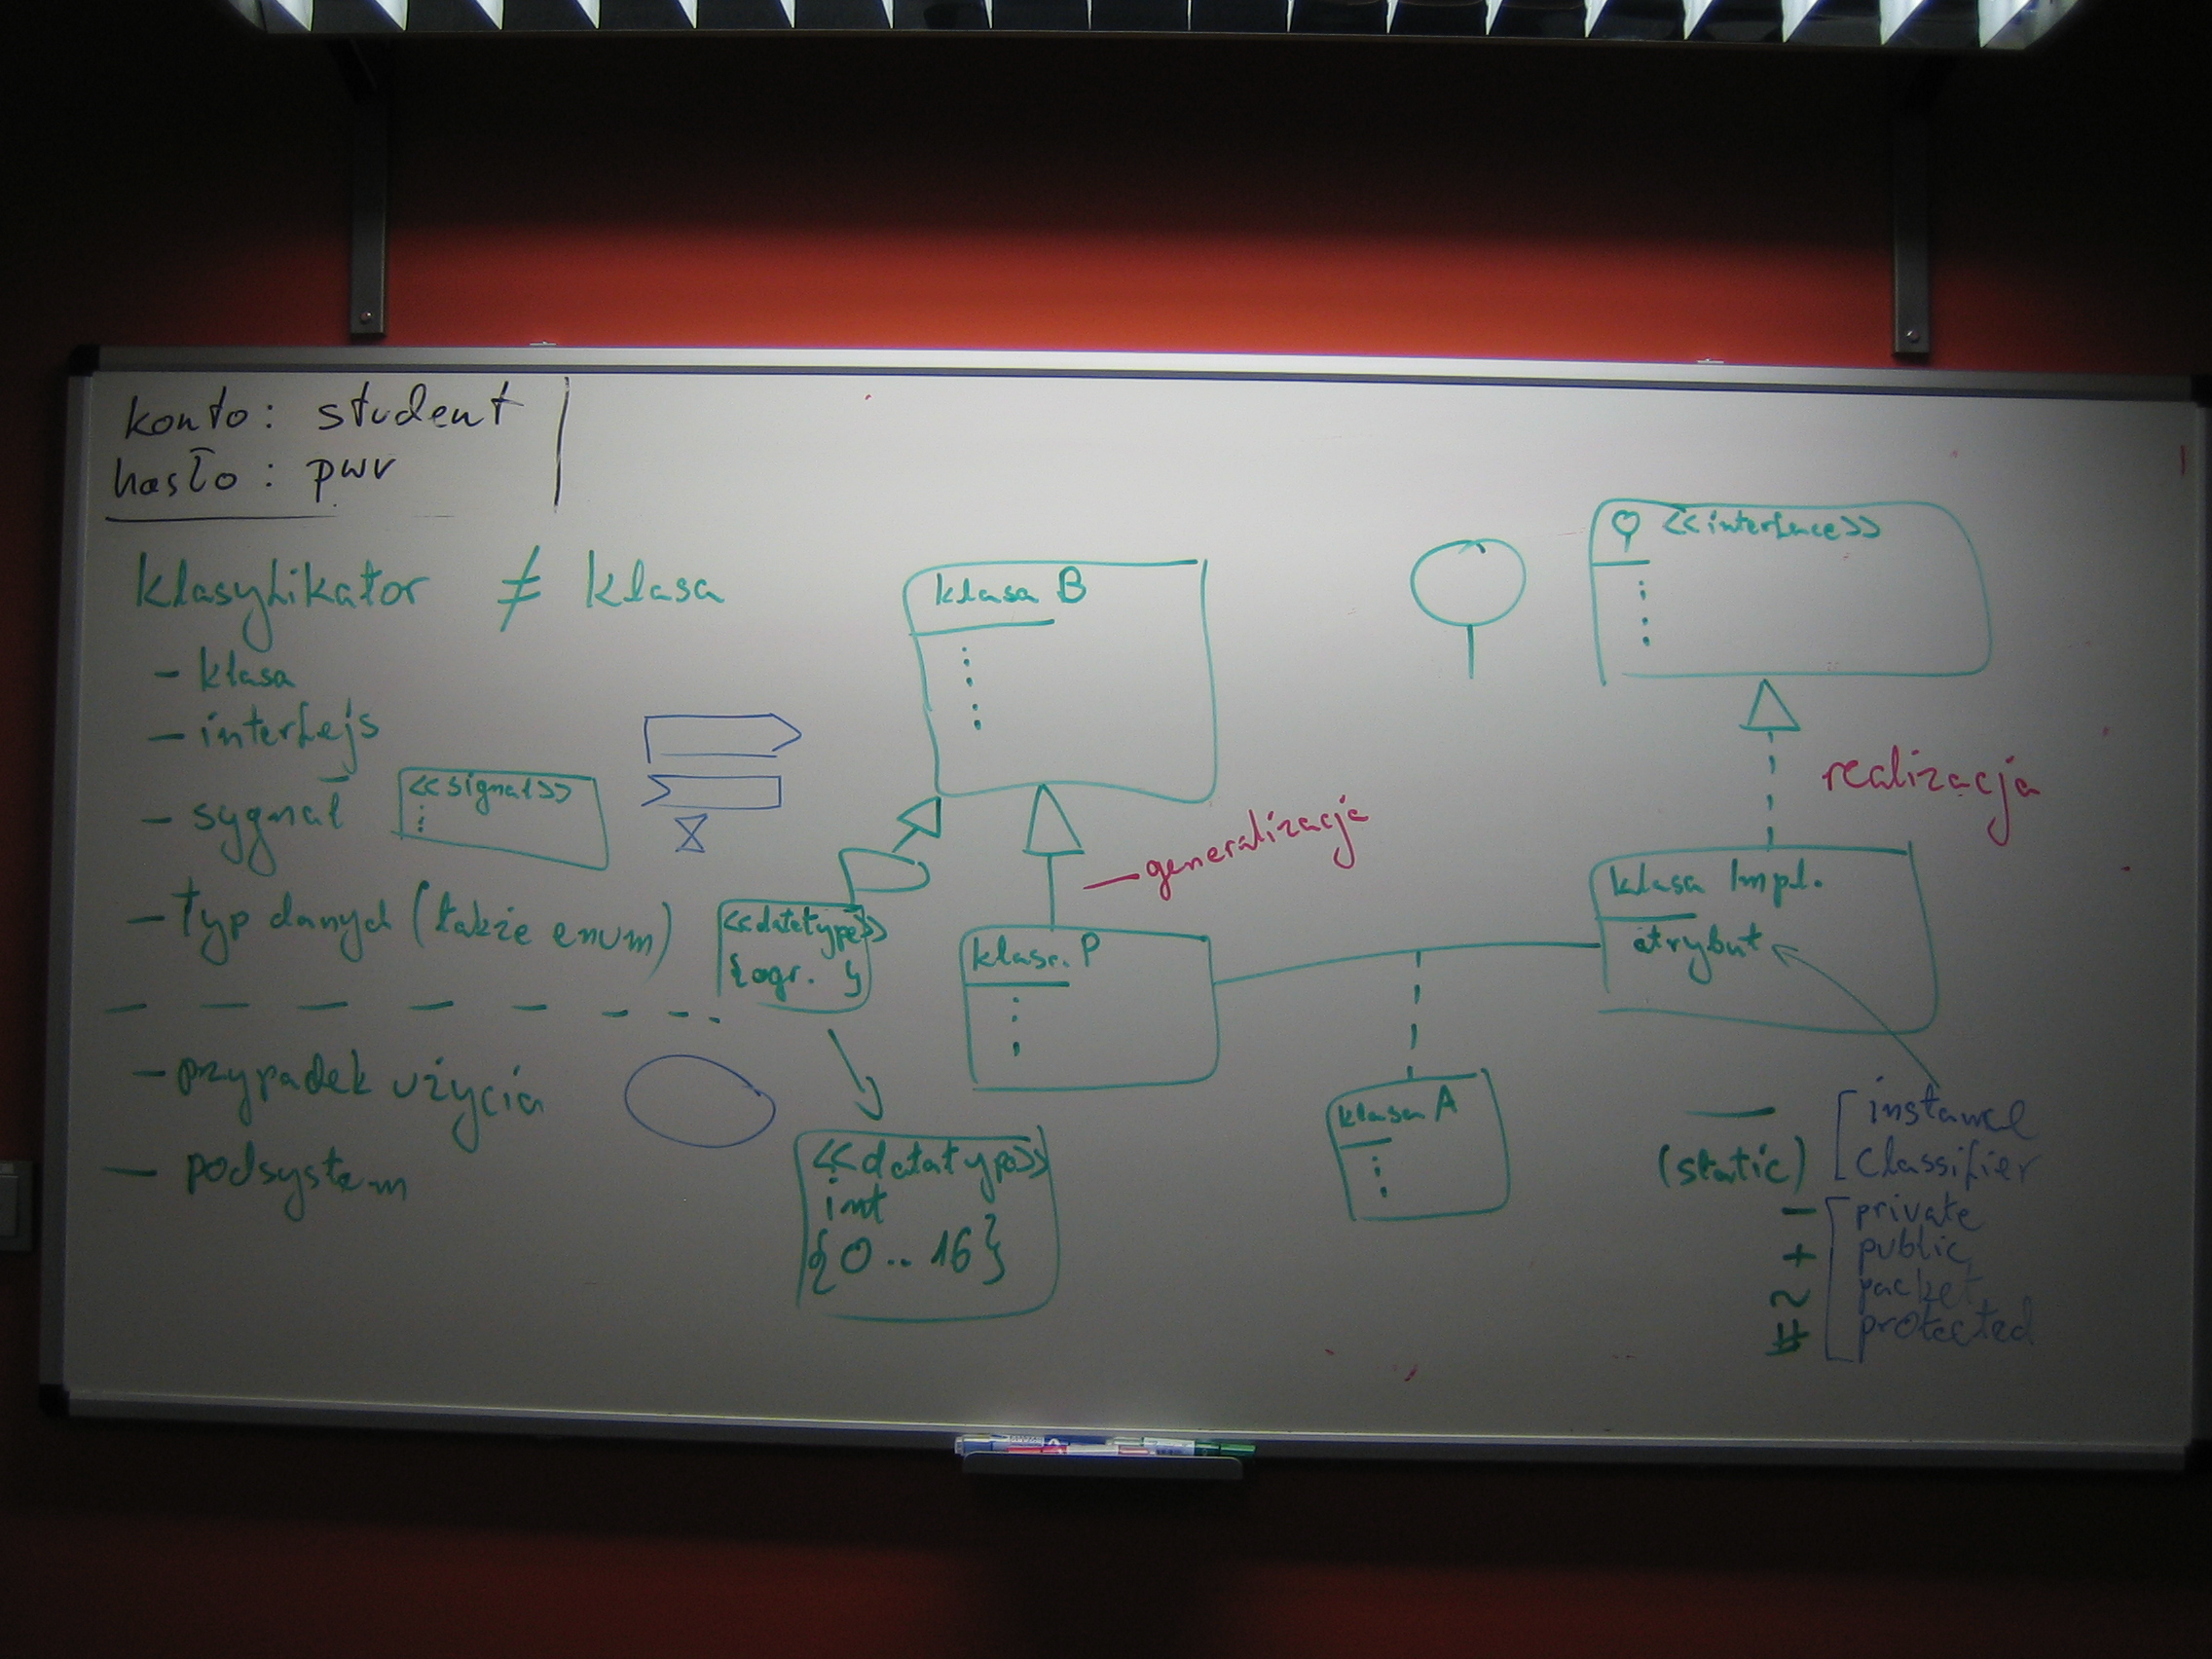 konto: student
hasło: pwr
klasyfikator ≠ klasa
- klasa
- interfejs
- sygnał
<<signal>>
- typ danych (także enum)
- przypadek użycia
- podsystem
<<datatype>>
{ogr. }
<<datatype>>
int
{0..16}
klasa B
generalizacja
klasa P
klasa A
<<interface>>
realizacja
klasa Impl.
atrybut
instance
(static) classifier
- private
+ public
~ packet
# protected